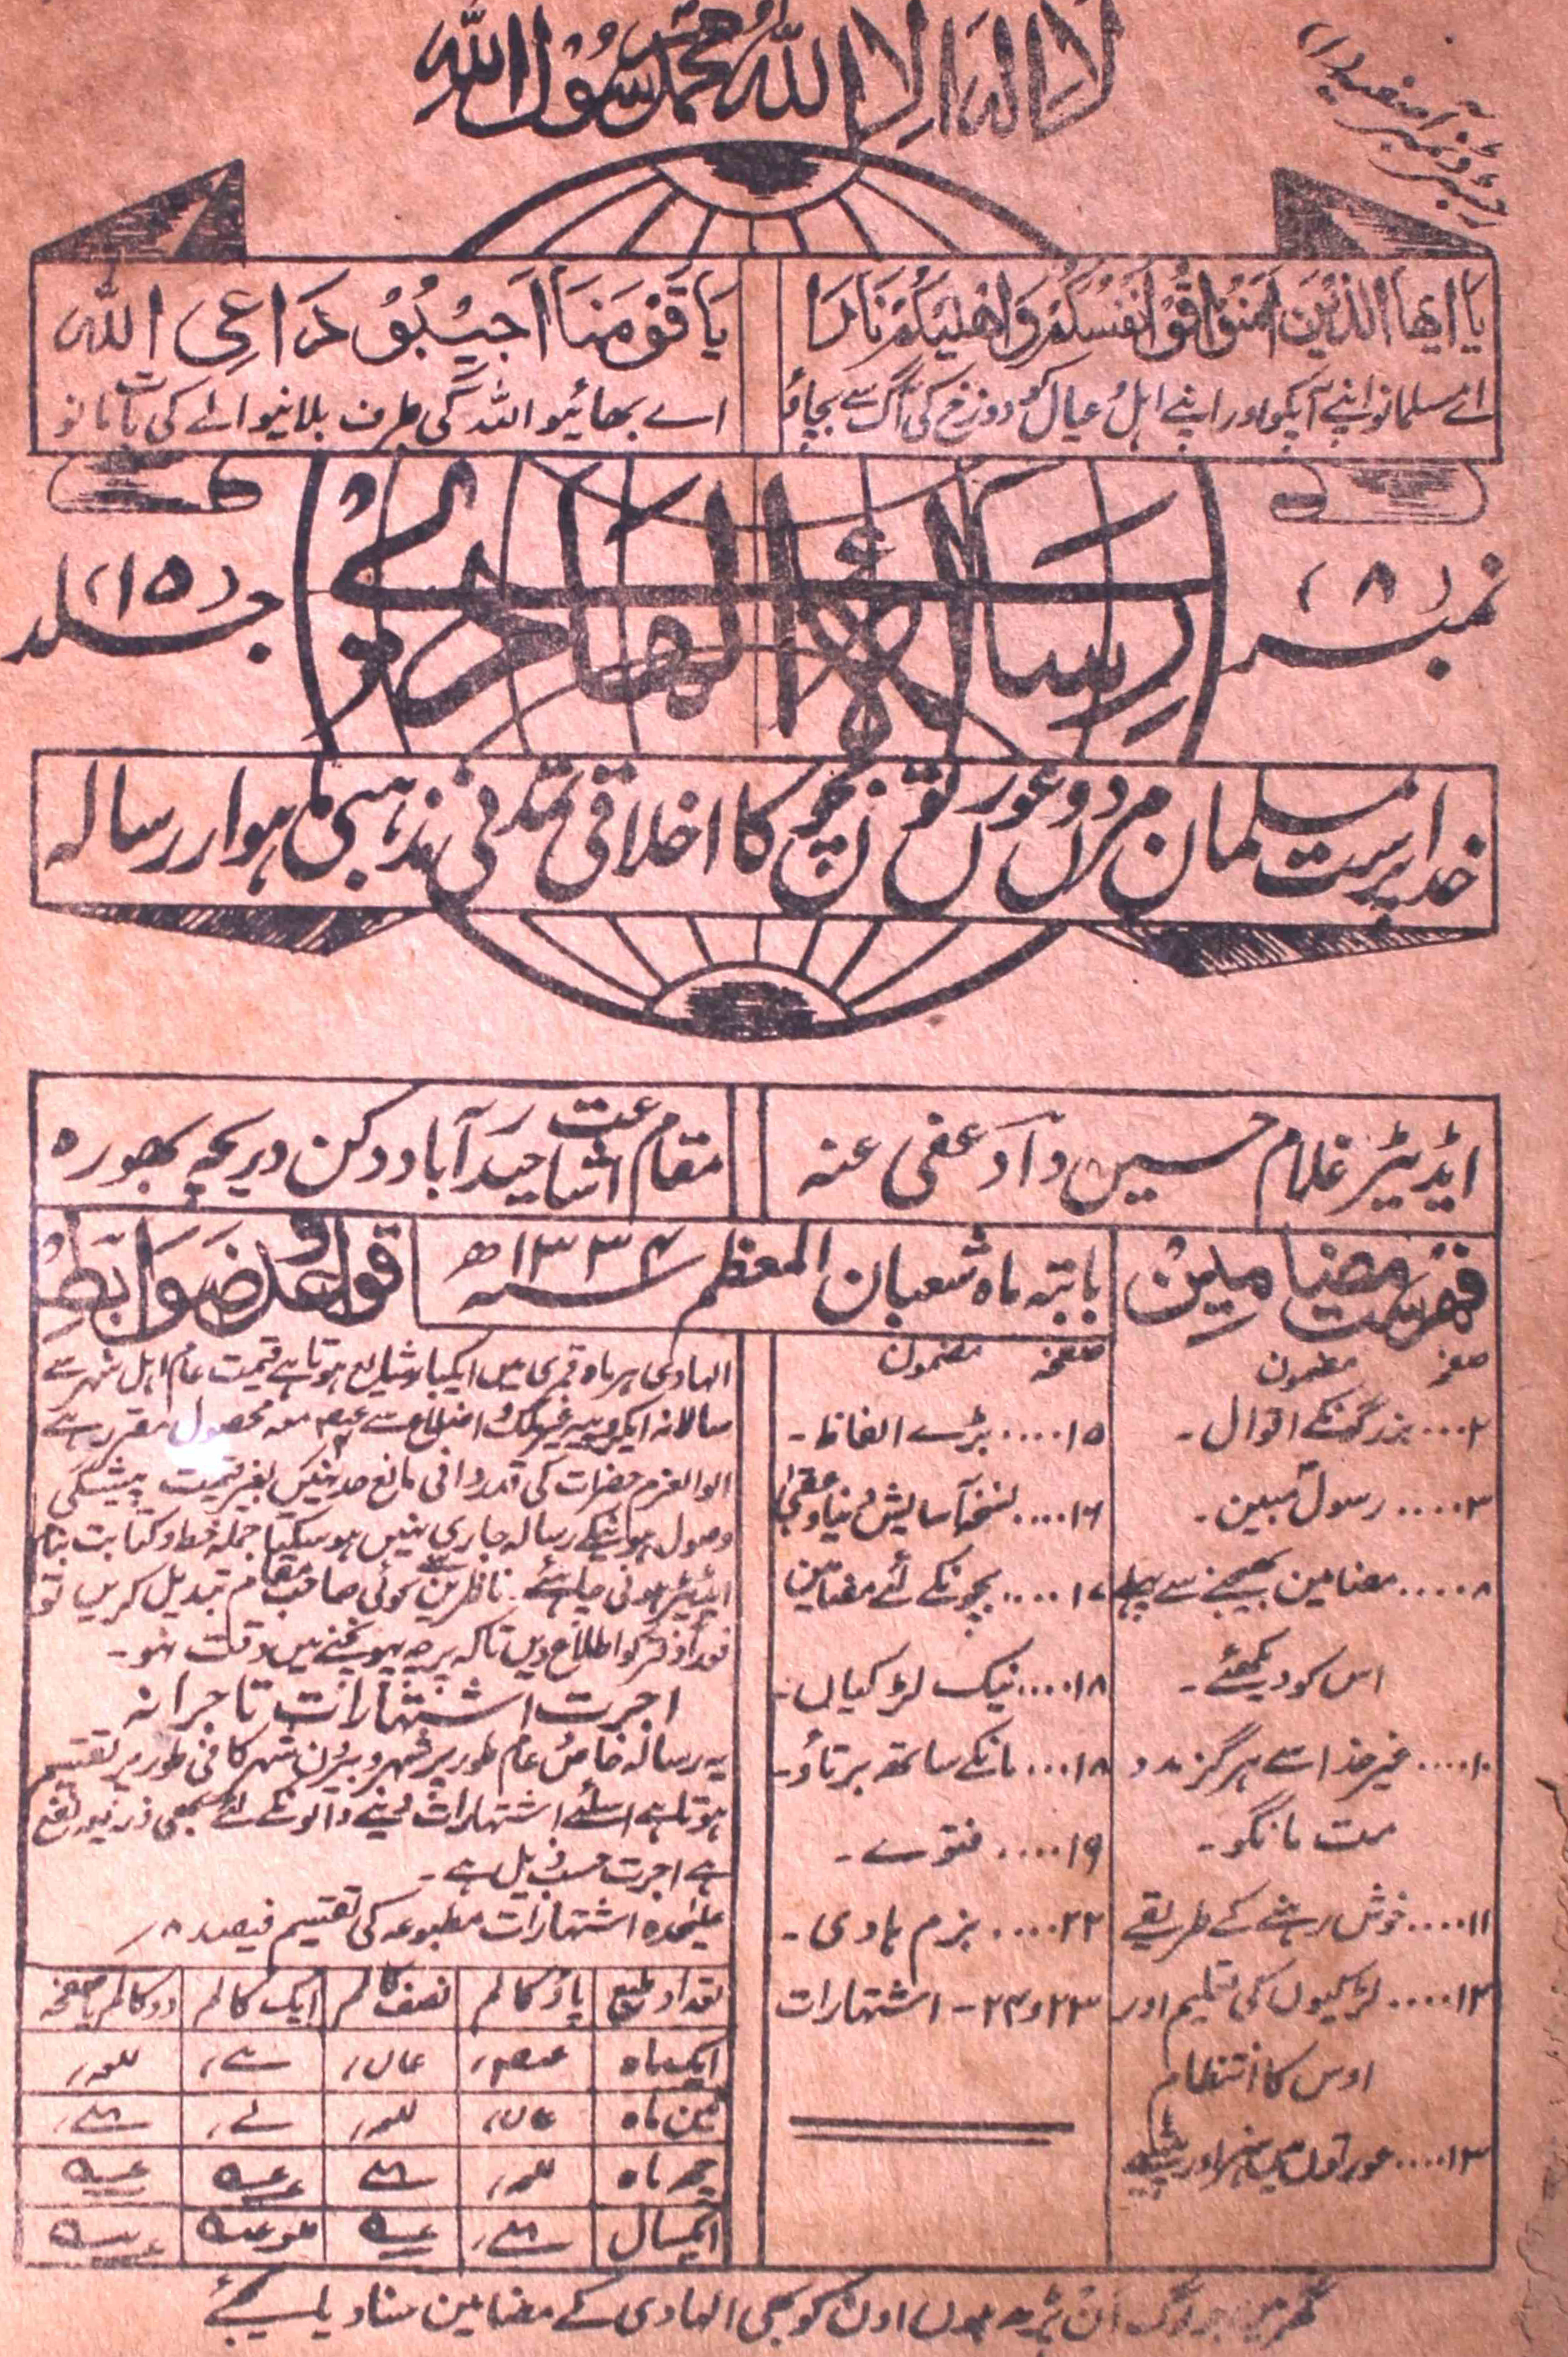 لا الہ الا اللہ محمد رسول اللہ
یا ایھا الذین اٰمنوا قوا انفسکم و اھلیکم نارا
اے مسلمانو اپنے آپکو اور اپنے اہل و عیال کو دوزخ کی آگ سے بچاؤ
یا قومنا اجیبوا داعی اللہ
اے بھائیو اللہ کی طرف بلانیوالے کی بات مانو
نمبر (۸)
رسالہ الہادی
جلد (۱۵)
خدا پرست مسلمان مردوں عورتوں بچوں کا اخلاقی تمدنی مذہبی ماہوار رسالہ
ایڈیٹر غلام حسین داد عفی عنہ
مقام اشاعت حیدرآباد دکن دریچہ بھورہ
فہرست مضامین
بابتہ ماہ شعبان المعظم سنہ ۱۳۳۴ھ
صفحہ مضمون
۲.... بزرگونکے اقوال۔
۳.... رسول مبین۔
۸.... مضامین بھیجنے سے پہلے
اس کو دیکھئے۔
۱۰.... غیر خدا سے ہرگز مدد
مت مانگو۔
۱۱.... خوش رہنے کے طریقے
۱۲.... لڑکیوں کی تعلیم اور
اوس کا انتظام
۱۳.... عورتوں میں ہنر اور پیشے
صفحہ مضمون
۱۵.... بڑے الفاظ۔
۱۶.... نسخہ آسایش دنیا و عقبیٰ
۱۷.... بچونکے لئے مضامین
۱۸.... نیک لڑکیاں۔
۱۸.... مانکے ساتھ برتاؤ۔
۱۹.... فتوے۔
۲۲.... بزم ہادی۔
۲۳ و ۲۴ - اشتہارات
قواعد و ضوابط
الہادی ہر ماہ قمری میں ایکبار شایع ہوتا ہے قیمت عام اہل شہر سے
سالانہ ایکروپیہ غیر ملک و اضلاع سے معہ محصول مقرر ہے
الوالعزم حضرات کی قدردانی مانع حد نہیں بغیر قیمت پیشگی
وصول ہونیکے رسالہ جاری نہیں ہو سکیگا جملہ خط و کتابت بنام
ایڈیٹر ہونی چاہئے۔ ناظرین سے کوئی صاحب مقام تبدیل کریں تو
فوراً دفتر کو اطلاع دیں تاکہ پرچہ پہونچنے میں دقت نہو۔
اجرت اشتہارات تاجرانہ
یہ رسالہ خاص و عام طور پر شہر و بیرون شہر کافی طور پر تقسیم
ہوتا ہے اسلئے اشتہارات دینے والونکے لئے بھی ذریعہ نفع
ہے اجرت حسب ذیل ہے۔
علیحدہ اشتہارات مطبوعہ کی تقسیم فیصد ۸؍
تعداد طبع پاؤ کالم نصف کالم ایک کالم دو کالم یا صفحہ
ایک ماہ
تین ماہ
چھ ماہ
ایکسال
گھر میں جو لوگ ان پڑھ ہوں اون کو بھی الہادی کے مضامین سنا دیا کیجئے